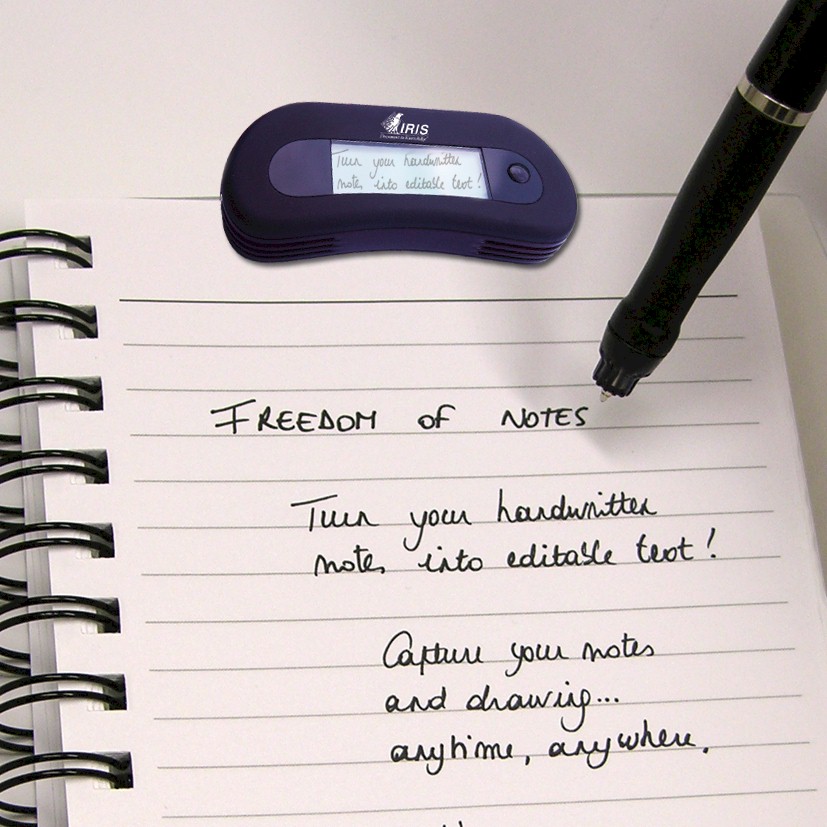 IRIS
Turn your handwritten
notes into editable text!
FREEDOM of NOTES
Turn your handwritten
notes into editable text!
Capture your notes
and drawing...
anytime, anywhere.